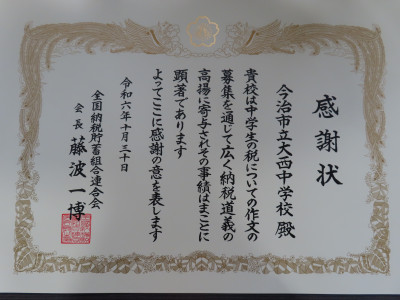 感謝状
今治市立大西中学校殿
貴校は中学生の税についての作文の
募集を通じて広く納税道義の
高揚に寄与されその事績はまことに
顕著であります
よってここに感謝の意を表します
令和六年十月三十日
全国納税貯蓄組合連合会
会長 藤波一博